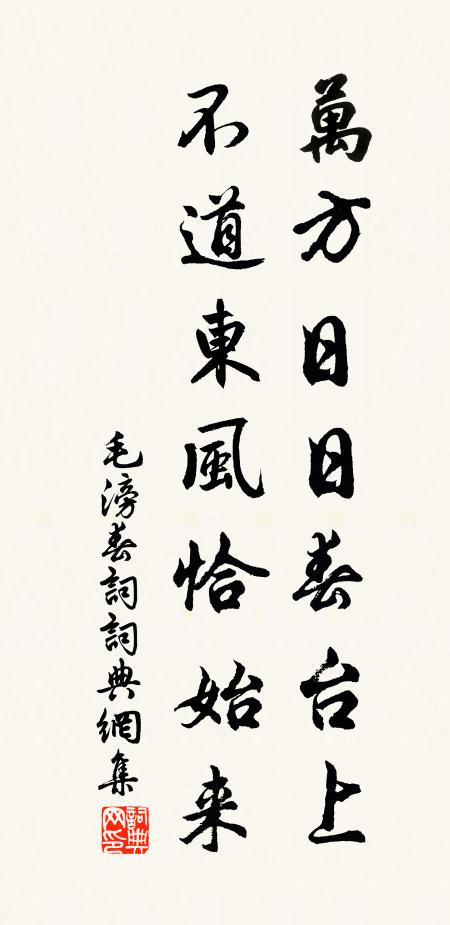 萬方日日春台上
不道東風恰始来
毛滂春詞詞典網集
詞典
网印